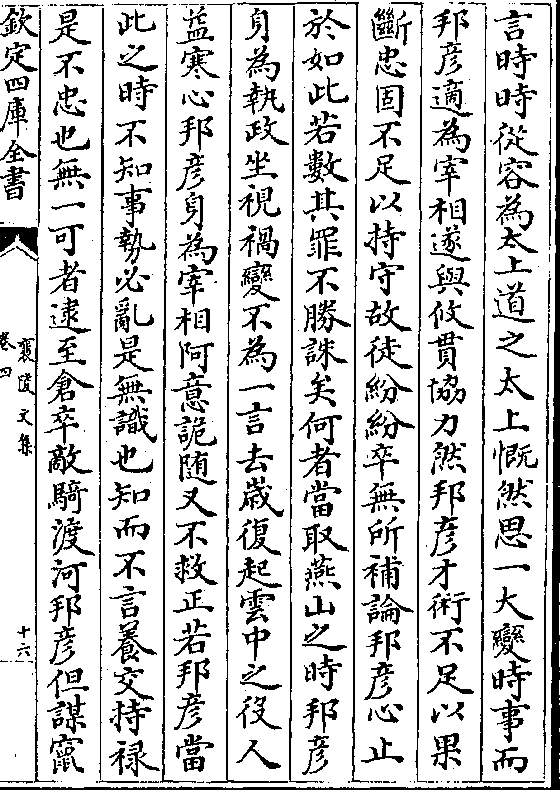 言時時從容為太上道之太上慨然思一大變時事而
邦彦適為宰相遂與攸貫協力然邦彦才術不足以果
斷忠固不足以持守故徒紛紛卒無所補論邦彦心止
於如此若數其罪不勝誅矣何者當取燕山之時邦彦
身為執政坐視禍變不為一言去歲復起雲中之役人
益寒心邦彦身為宰相阿意詭随又不救正若邦彦當
此之時不知事勢必亂是無識也知而不言養交持禄
是不忠也無一可者逮至倉卒敵騎渡河邦彦但謀竄
欽定四庫全書
襄陵文集
卷四
十六